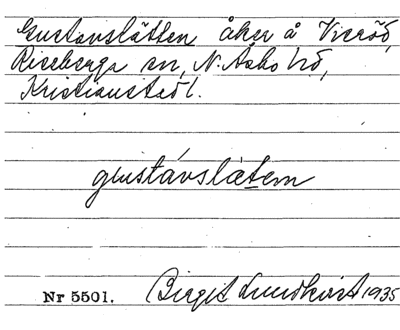 Gustavslätten åker å Vieröd,
Riseberga sn, N. Åsbo hd,
Kristianstad l.
gustávslätem
Nr 5501. Birgit Lundkvist 1935